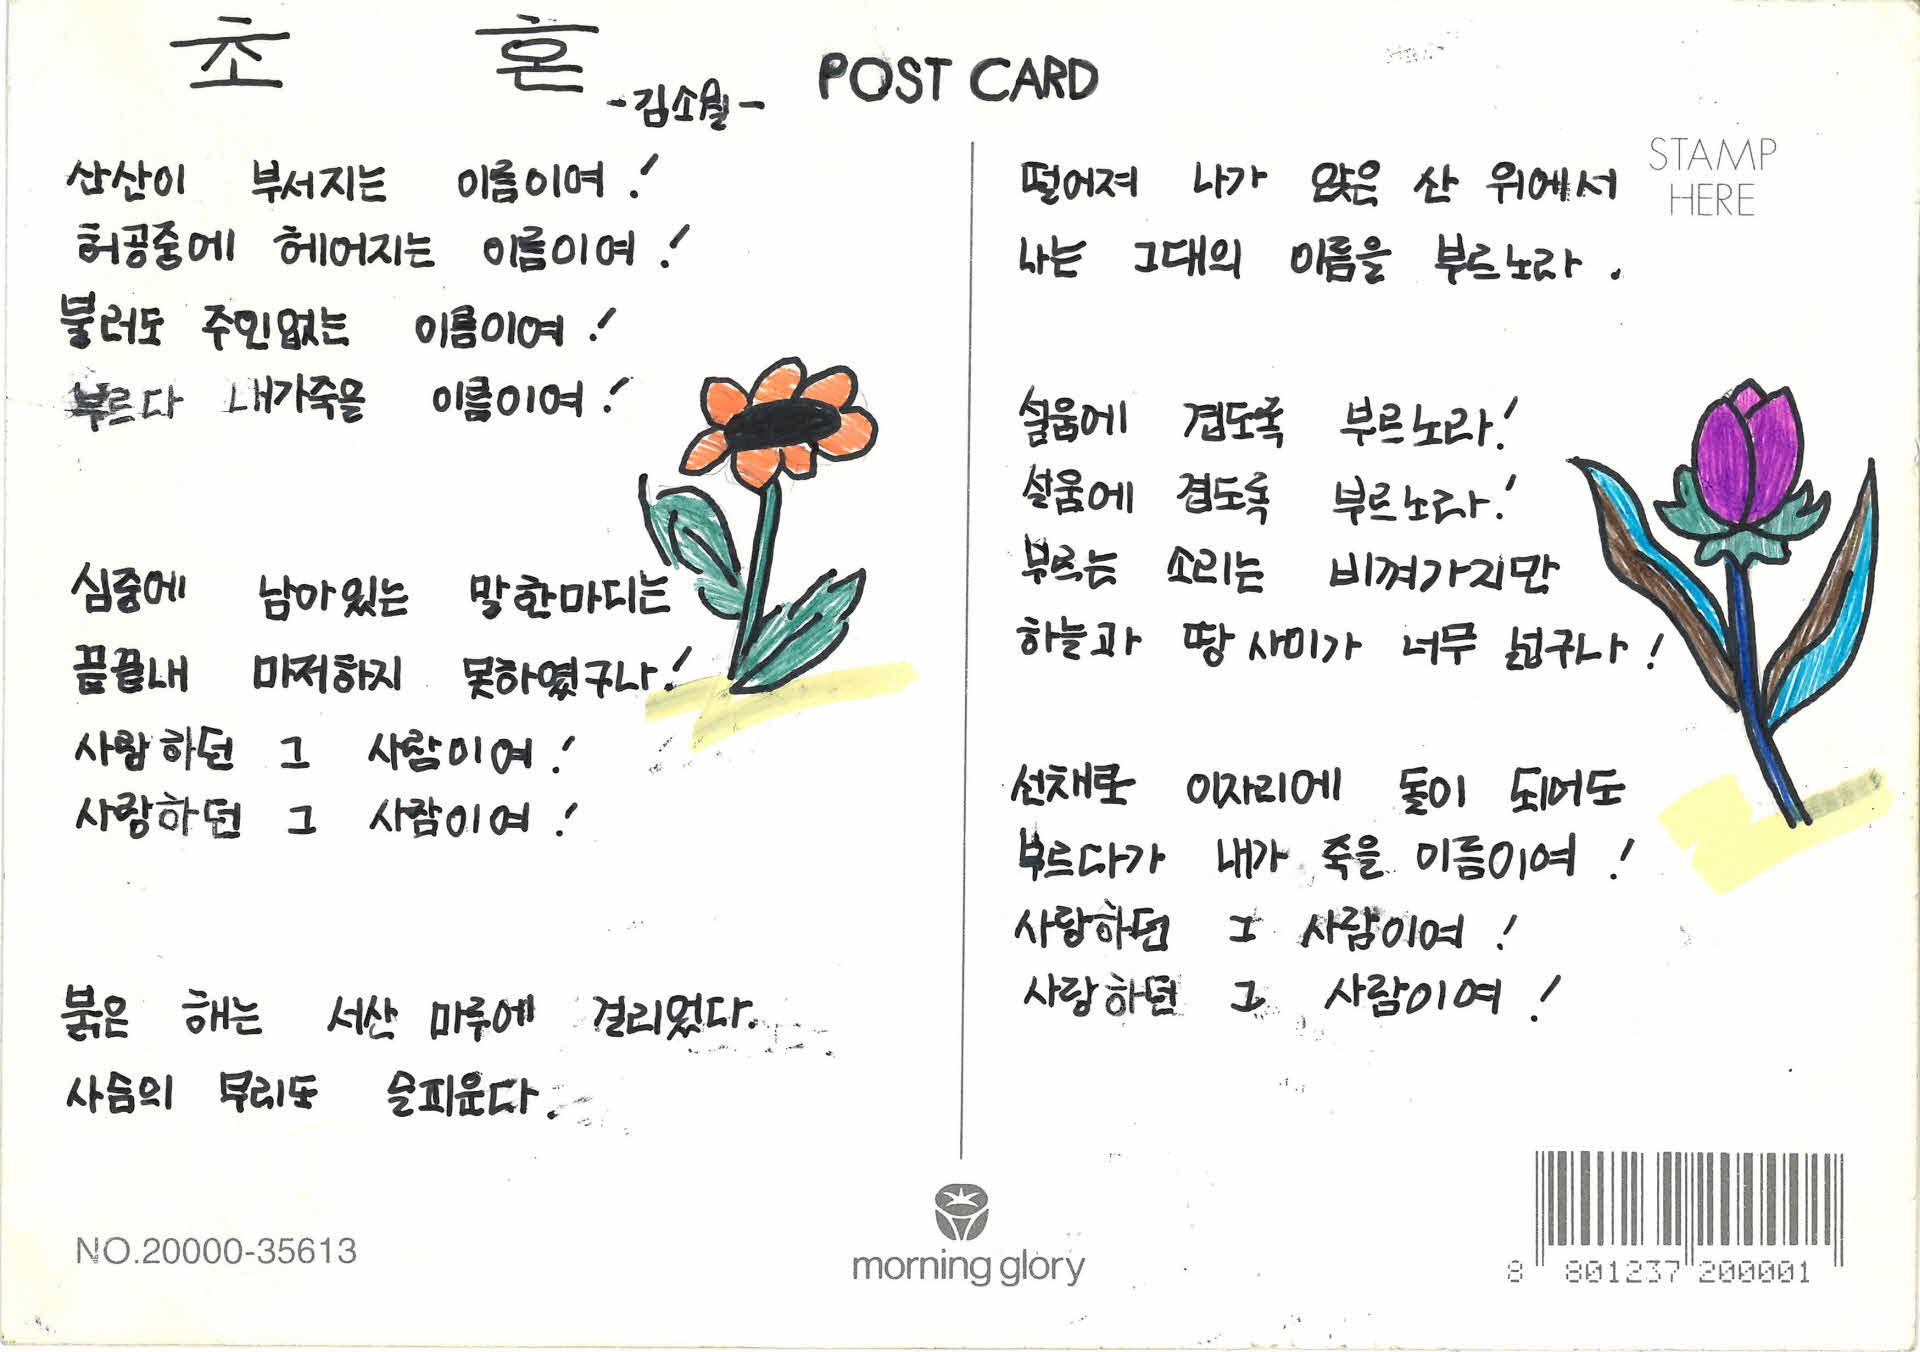 초 혼
-김소월-
POST CARD
산산이 부서지는 이름이여!
허공중에 헤어지는 이름이여!
불러도 주인없는 이름이여!
부르다 내가죽을 이름이여!
심중에 남아있는 말한마디는
끝끝내 마저하지 못하였구나!
사랑하던 그 사람이여!
사랑하던 그 사람이여!
붉은 해는 서산 마루에 걸리었다.
사슴의 무리도 슬피운다.
STAMP
HERE
떨어져 나가 앉은 산 위에서
나는 그대의 이름을 부르노라.
설움에 겹도록 부르노라!
설움에 겹도록 부르노라!
부르는 소리는 비껴가지만
하늘과 땅 사이가 너무 넓구나!
선채로 이자리에 돌이 되어도
부르다가 내가 죽을 이름이여!
사랑하던 그 사람이여!
사랑하던 그 사람이여!
NO.20000-35613
morning glory
8 801237 200001